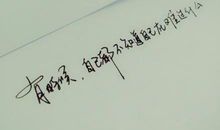 有时候,自己都不知道自己在难过什么